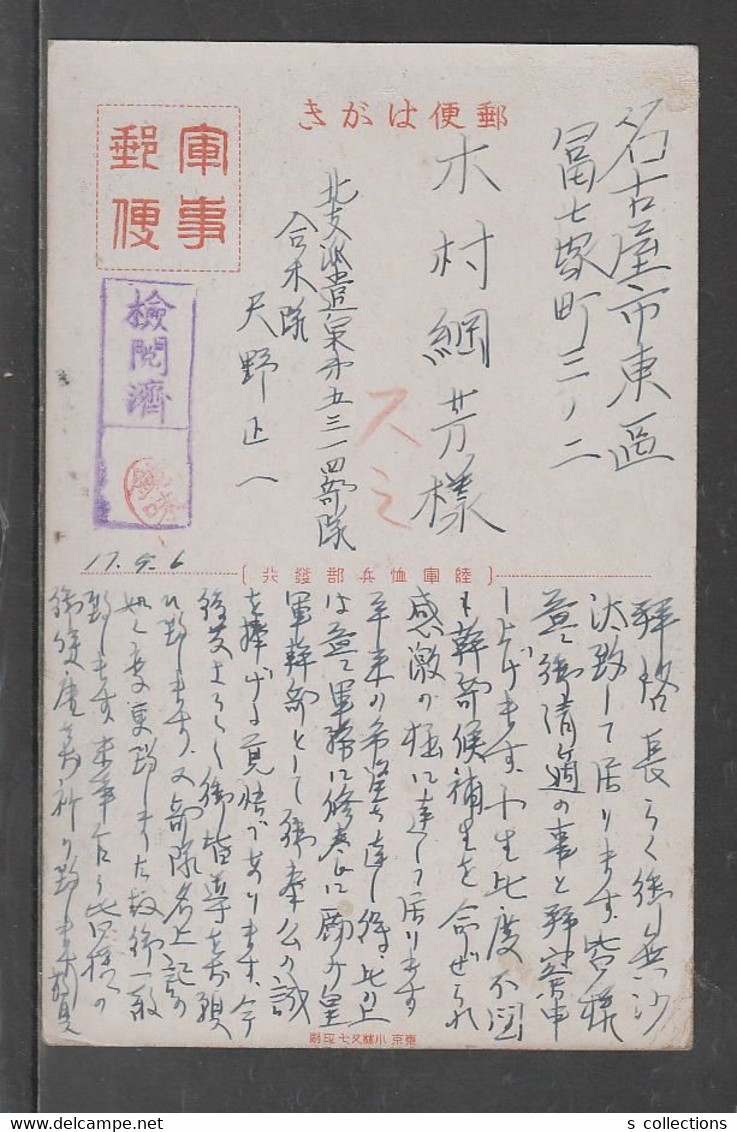 郵便はがき
軍事
郵便
檢閲濟
名古屋市東區
冨士塚町三ノ二
木村綱芳様
北支派遣第五三一四部隊
合木隊
天野正一
スミ
17.9.6
(陸軍恤兵部發行)
拝啓 長らく御無沙
汰致して居ります、皆々様
益々御清適の事と拝察申
し上げます、小生此度不図
も幹部候補生を命ぜられ
感激の極に達して居ります
年来の希望を達し得、此の上
は益々軍務に修養に励み皇
軍幹部として御奉公の誠
を捧げる覚悟であります、今
後共よろしく御指導を御願
ひ致します、又部隊名上記の
如く変更致しました故御一報
致します、末筆乍ら皆様の
御健康を祈り致します 敬具
東京 小林又七印刷
s collections